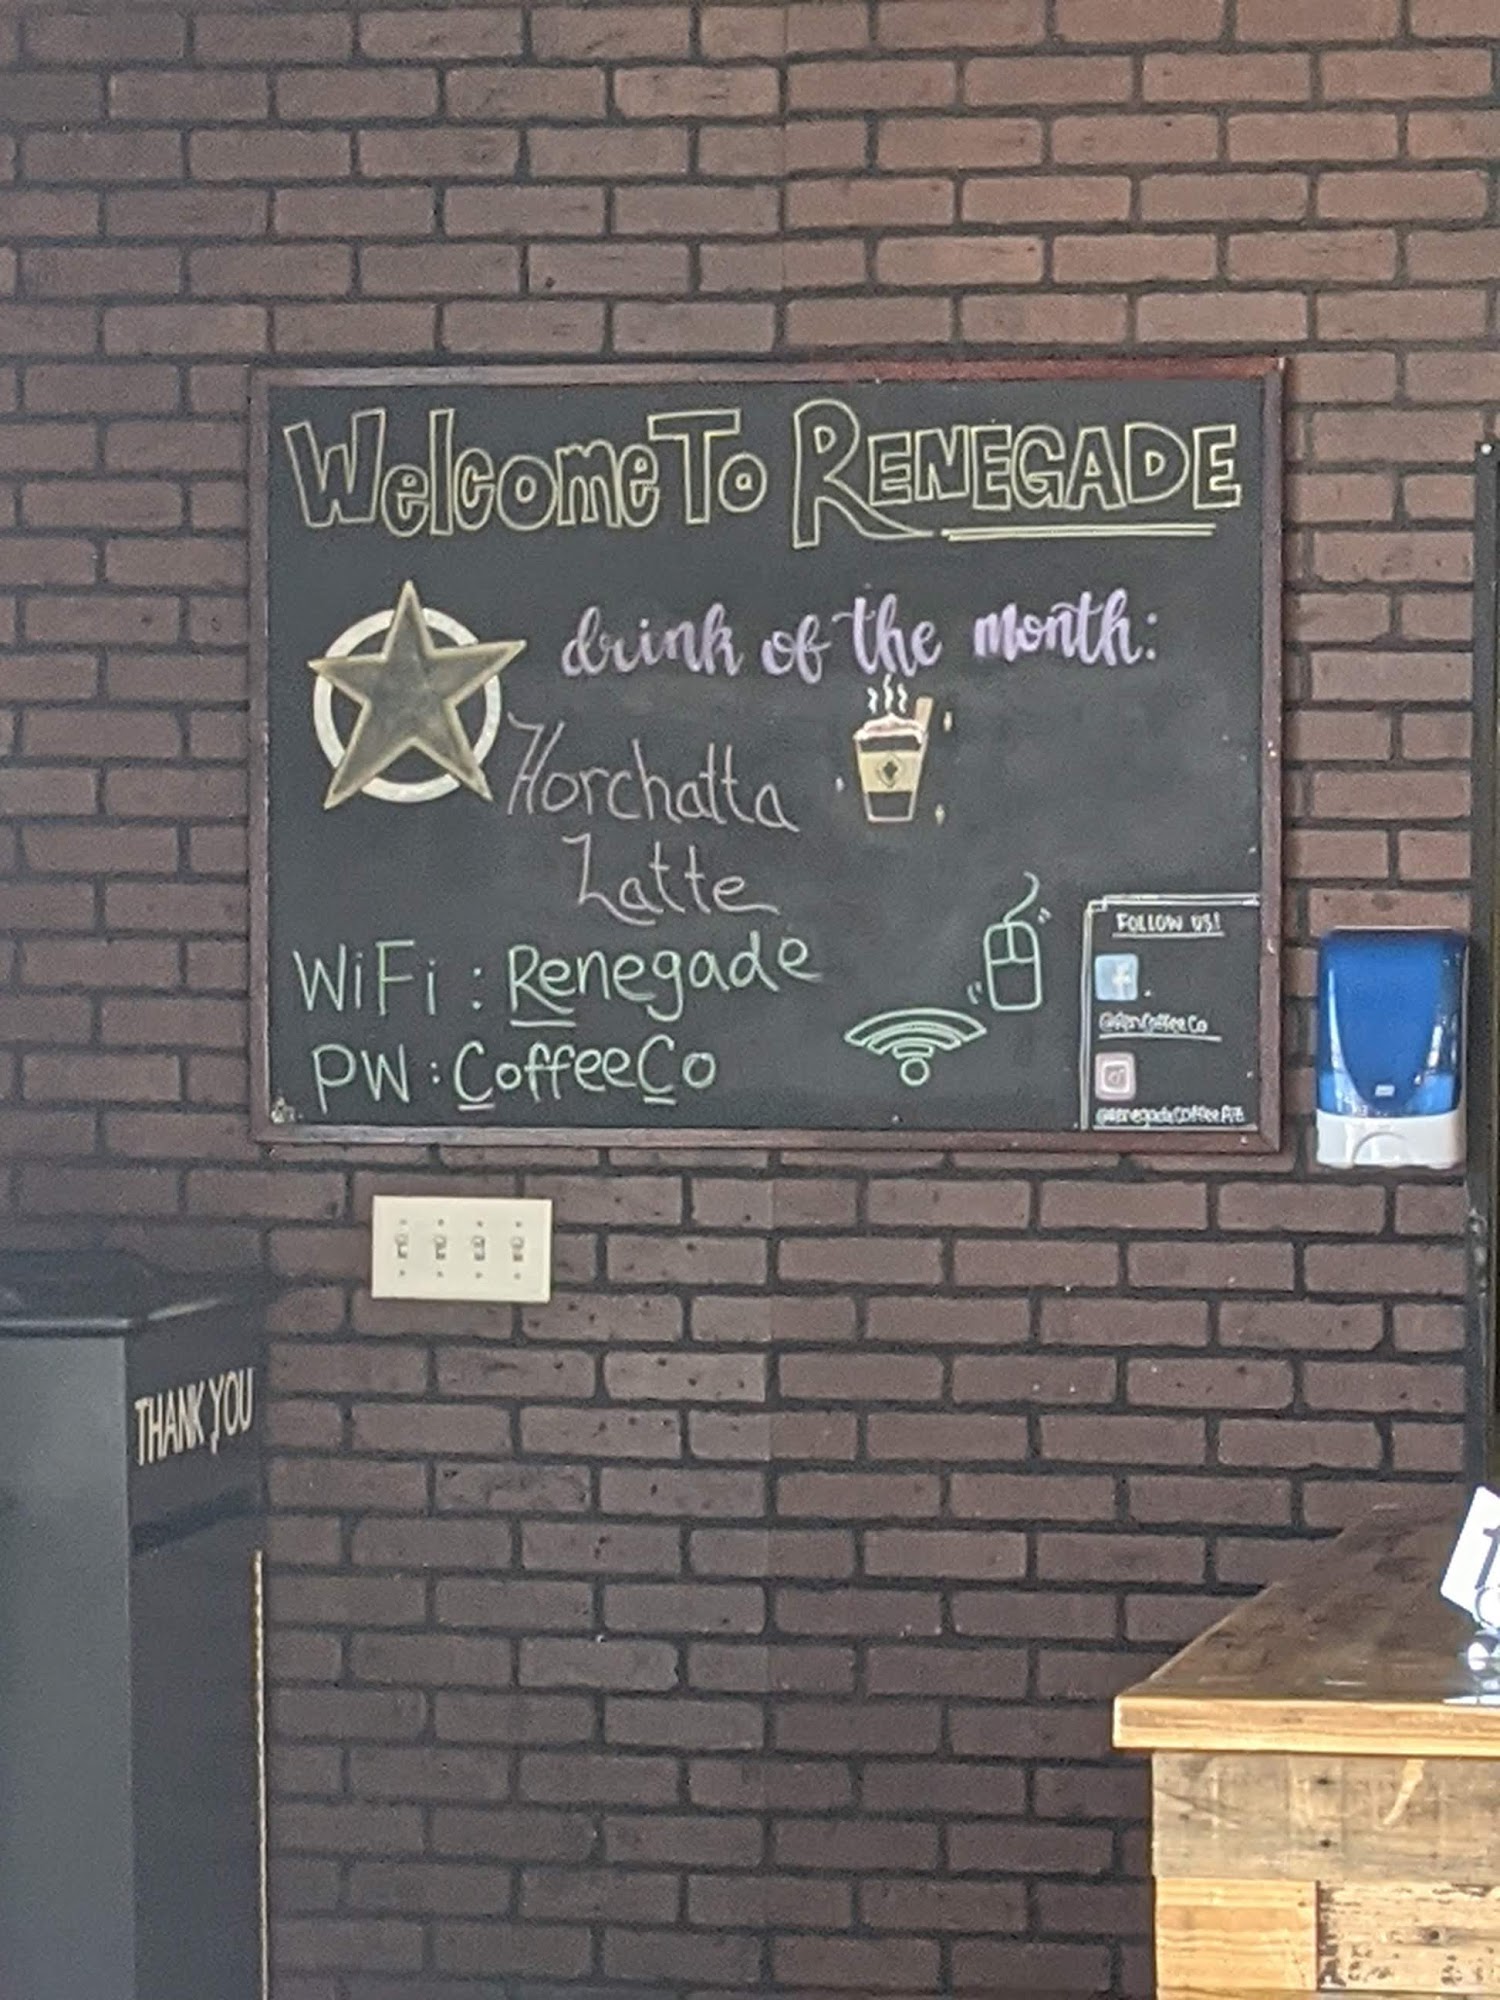 Welcome To RENEGADE
drink of the month:
Horchatta
Latte
WiFi : Renegade
PW : CoffeeCo
FOLLOW US!
@RenegadeCoffeeAZ
THANK YOU